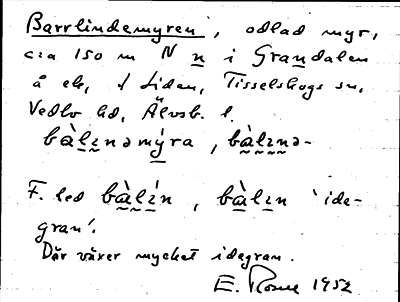 Barrlindemyren, odlad myr,
c:a 150 m N n i Grandalen
å ek, f Liden, Tisselskogs sn,
Vedbo hd, Älvsb. l.
bàlɪnəmýra, bàlɪnə-
F. led bàlɪ́n, bàlɪn 'ide-
gran'.
Där växer mycket idegran.
E. Rosne 1952